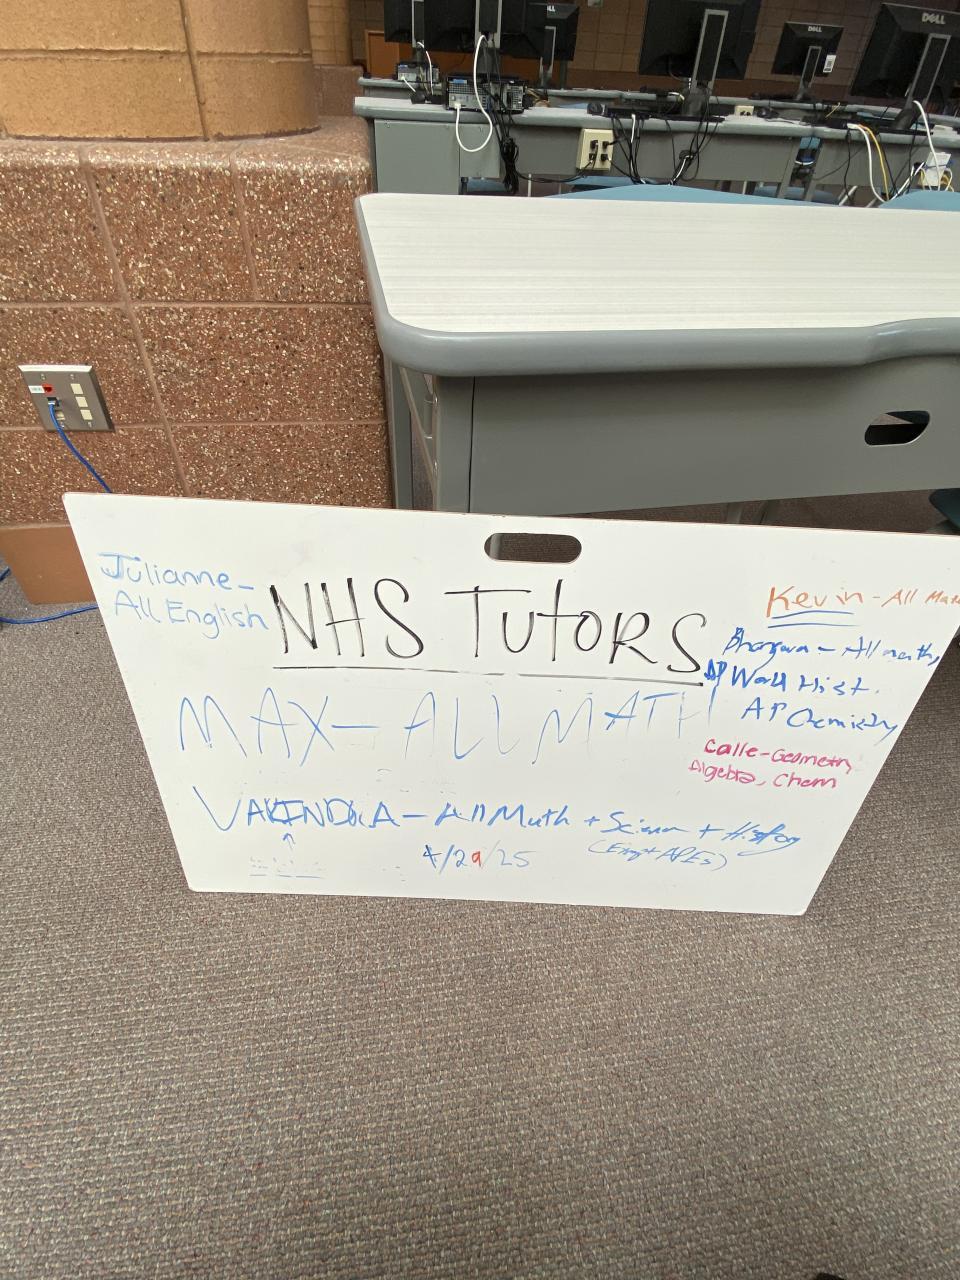 DELL
DELL
DELL
NHS TUTORS
Julianne-
All English
Kevin - All Mat
- All math,
AP World Hist.
AP Chemistry
MAX- ALL MATH
Calle-Geometry
Algebra, Chem
- All Math + Science + History
4/29/25